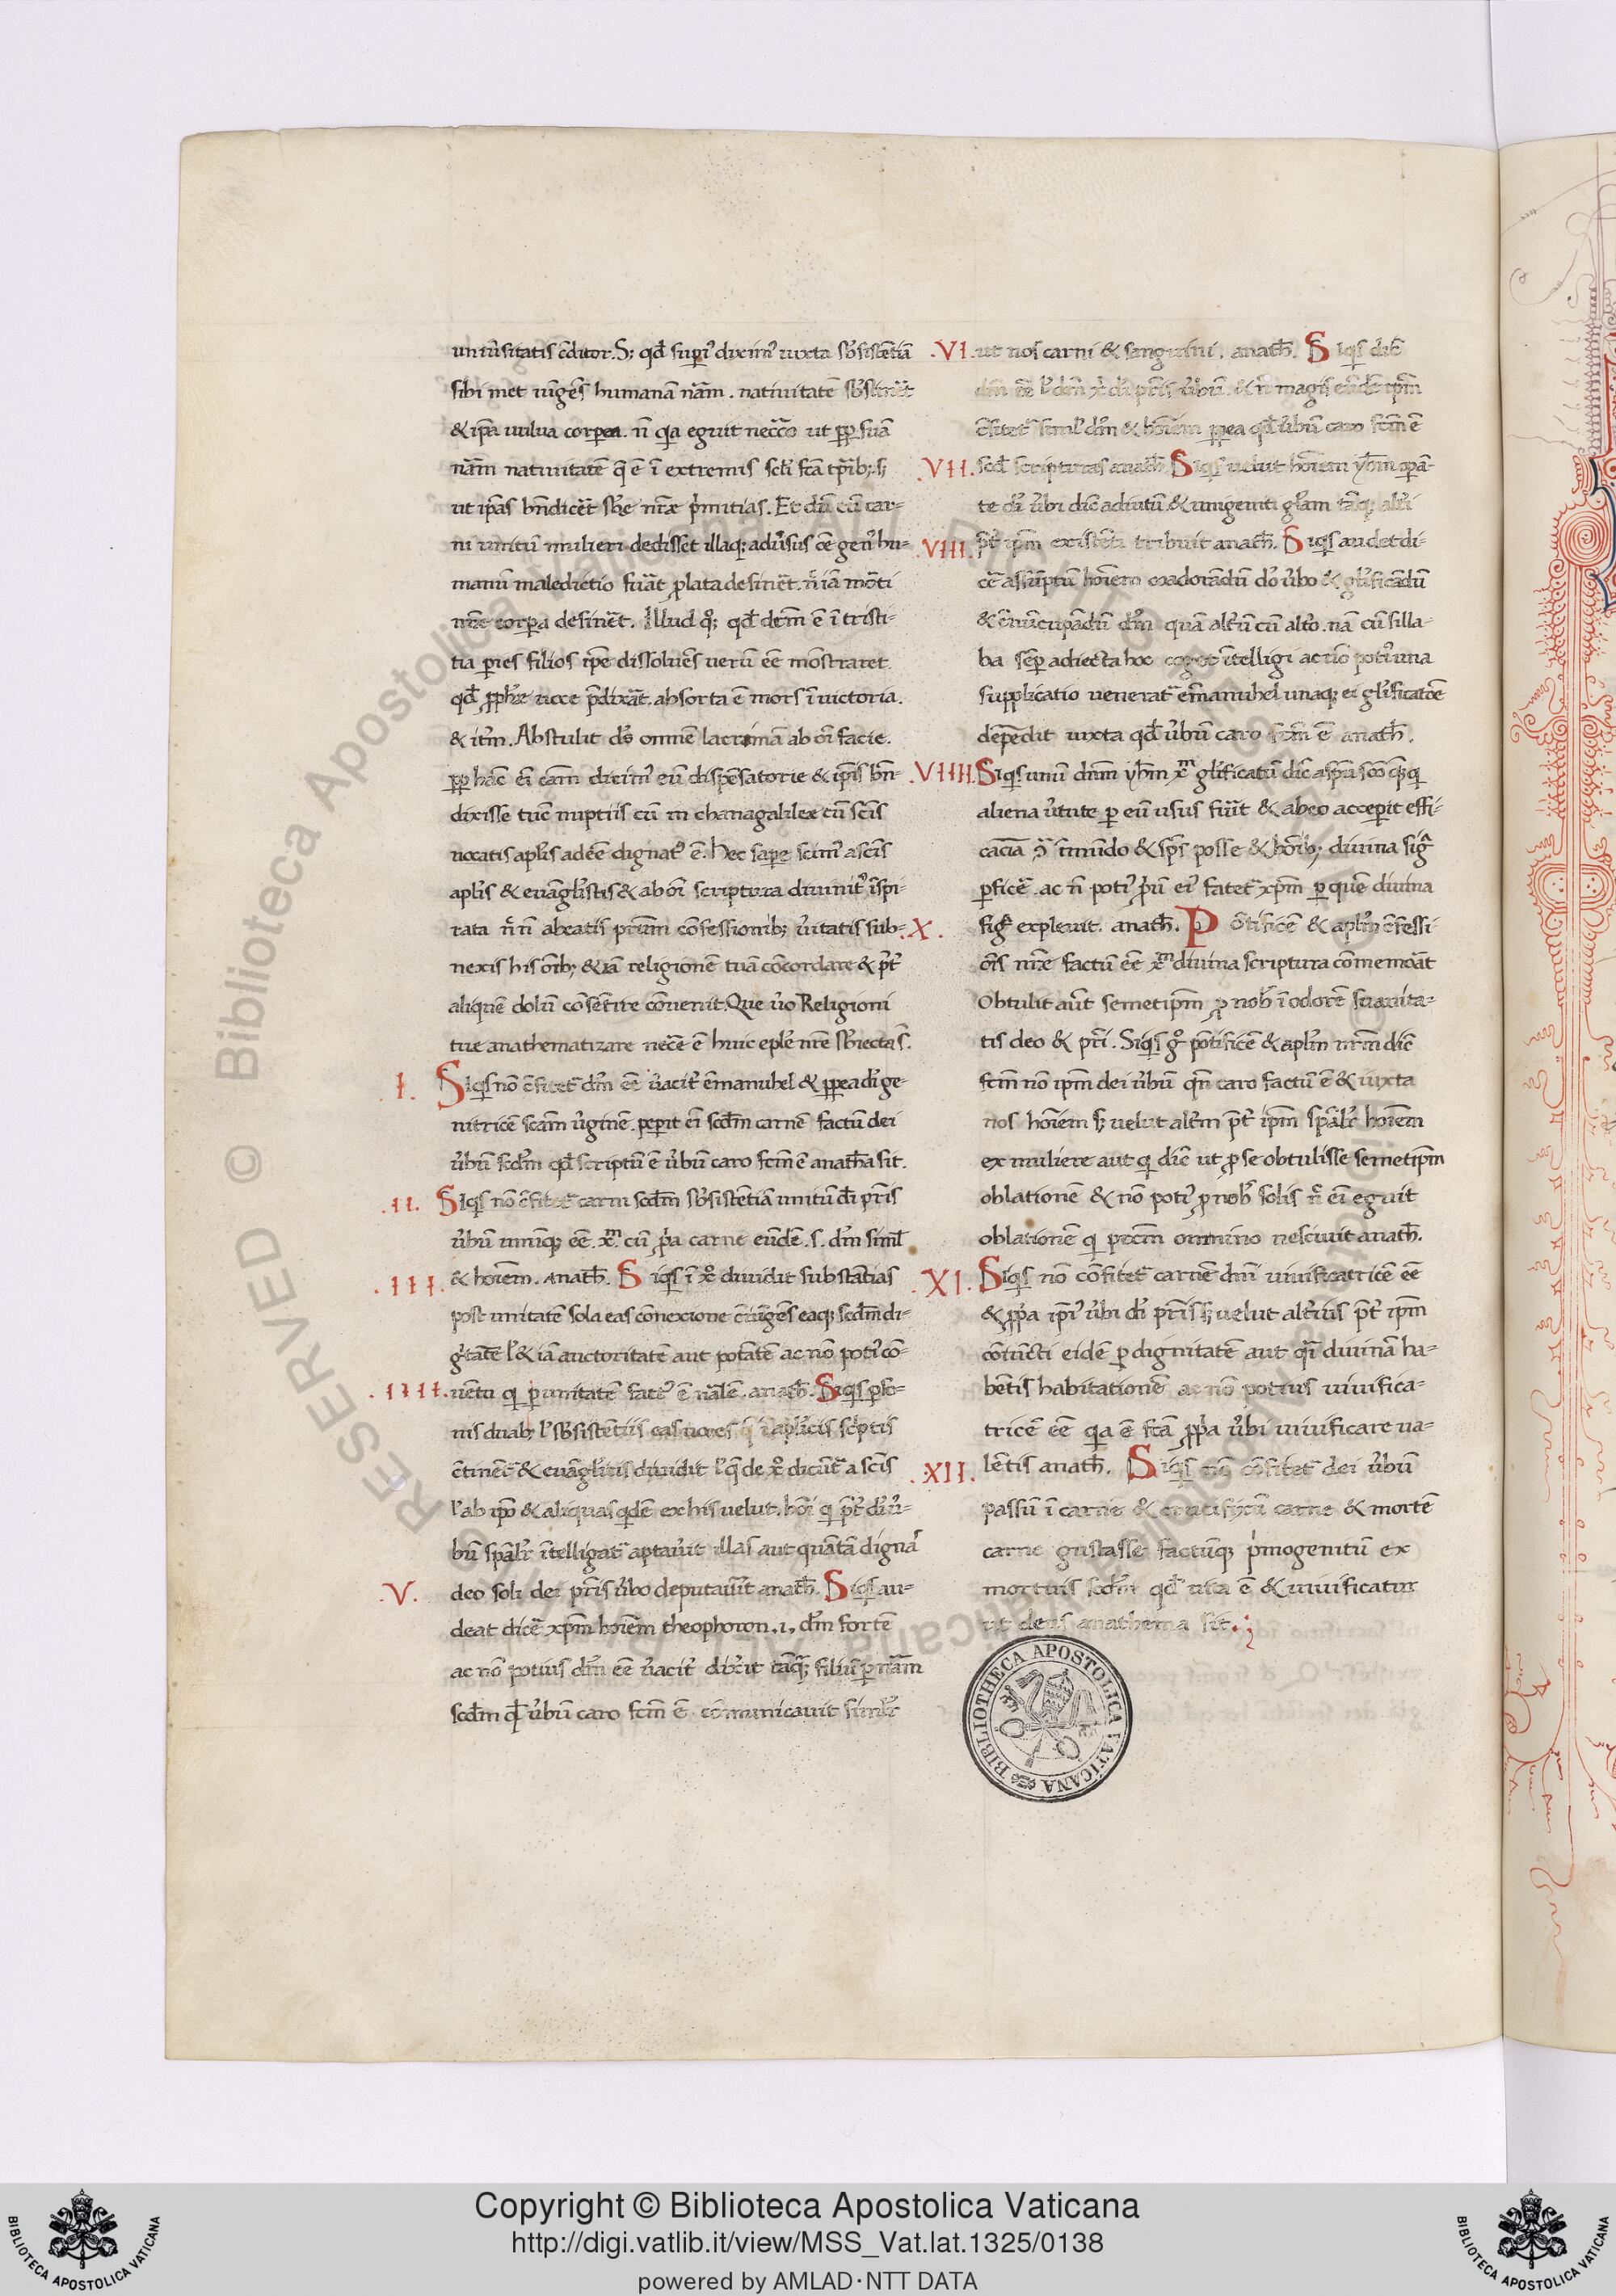 uniūsitatis c̄ditor. S; qd̄ supi᾽ dixim᾽ iuxta sb̄sistētiā
sibi met iūgēs humanā nām. nativitatē sb̄stinēt
& ip̄a vulua corꝑea. n̄ qia eguit necc̄o ut ꝓp suā
nām nativitatē q̄ ē ī extremis scl̄i fc̄a tꝑib; s;
ut ip̄as bn̄dicēt sb̄c nr̄æ p̄mitias. Et dū cū car-
ni unitū mulieri dedisset illaq; adūsus ōe gen᾽ hu-
manū maledictio fuāt ꝓlata desinēt. n̄ iā mōti
nr̄æ corꝑa desinēt. Illud q̊; qd̄ dcm̄ ē ī tristi-
tia paries filios ip̄e dissoluēs verū ēē mōstraret
qd̄ ꝓph̄æ uoce p̄dixāt. absorta ē mors ī victoria.
& itm̄. Abstulit dn̄s omnē lacrimā ab oī facie.
ꝓp hāc ei cām dicim᾽ eū dispēsatorie & ip̄is bn̄-
dixisse tūc nuptiis cū in chanagalileæ cū scīs
uocatis apl̄is adēē dignat᾽ ē. hec sapere scim᾽ a scīs
apl̄is & evāgl̄istis & ab oī scriptura divinit᾽ īspi-
rata n̄ n̄ abeatis prūm cōfessionib; ūitatis sub-
nexis his oīb; & iā religionē tuā cōcordare & p̄t
aliquē dolū cōsētire cōvenit. Que ūo Religioni
tue anathematizare necc̄e ē huic epl̄e nr̄e sb̄iecta s̄.
.I. Siqis nō c̄fitet᾽ dm̄ ēē ūacit᾽ ēmanuhel & ꝓpea di ge-
nitricē scām ūginē. peperit ei scdm̄ carnē factū dei
ūbū scdm̄ qd̄ scriptū ē ūbū caro fcm̄ ē anath̄a sit.
.II. Siqis nō c̄fitet᾽ carni scdm̄ sb̄sistētiā unitū di pr̄is
ūbū unūq; ēē xp̄m cū ꝓpa carne eūdē .s. dm̄ siml̄
.III. & hoīem. anath̄. Siqis ī xp̄o dividit substātias
post unitatē sola eas cōnexione c̄iūgēs eaq; scdm̄ di-
gītatē l᾽ & iā auctoritatē aut potatē ac nō poti᾽ cō-
.IIII. uētu q ꝑ unitatē fact᾽ ē nālē. anath̄. Siqis pso-
nis duab; l᾽ sb̄sistētiis eas voces q̄ ī aplicis scp̄tis
c̄tinēt᾽ & evāgl̄icis dividit l᾽ q̄ de xp̄o dicūt᾽ a scīs
l᾽ ab ip̄o & aliquas qidē ex his velut hoī q p̄t di ū-
bū spālr̄ ītelligat᾽ aptavit illas aut quātā dignā᾽
.V. deo soli dei pr̄is ūbo deputavūt anath̄. Siqis au-
deat dicē xp̄m hoīem theophoron .i. dm̄ fortē
ac nō potius dm̄ ēē ūacit᾽ dixit tāq; filiū ꝑ nām
scdm̄ qd̄ ūbū caro fcm̄ ē cōmunicavit similr̄
.VI. ut nos carni & sanguini. anath̄. Siqis dic̄
dm̄ ēē l᾽ dn̄m xp̄i di pr̄is ūbū & n̄ magis eūdē ip̄m
c̄fitet᾽ siml̄ dm̄ & hoīem ꝓpea qd̄ ūbū caro fcm̄ ē
.VII. scd̄ scripturas anath̄. Siqis velut hoīem yhm̄ opā-
te di ūbi dic̄ adiutū & unigeniti gl̄am tāq; alt᾽i
.VIII. p̄t ip̄m existēti tribuit anath̄. Siqis audet di-
cē assūptū hoīem coadorādū do ūbo & gl̄ificādū
& c̄nūcupādū dm̄ quā alt᾽ū cū alt᾽o. nā cū silla-
ba semꝑ adiecta hoc coget ītelligi ac nō poti᾽ una
supplicatio venerat᾽ ēmanuhel unaq; ei gl̄ificatōē
depēdit iuxta qd̄ ūbū caro fcm̄ ē anath̄.
.VIIII. Siqis unū dn̄m yhm̄ xp̄m gl̄ificatū dic̄ a spū scō qsq; q
aliena ūtute ꝑ eū usus fuit & ab eo acceperit effi-
caciā immūdo & sp̄s posse & hoīb; divina sig᾽
ꝑficē ac n̄ poti᾽ p̄iū ei᾽ fatet᾽ xp̄m ꝑ quē divina
.X. sig᾽ explevit. anath̄. Pōtificē & aplm̄ c̄fessi
oīs nr̄æ factū ēē xp̄m divina scriptura cōmemōat
Obtulit aūt semetip̄m ꝓ nob᾽ ī odorē suavita-
tis deo & pr̄i. Siqis g̊ pōtificē & aplm̄ nr̄m dic̄
fcm̄ nō ip̄m dei ūbū qn̄ caro factū ē & iuxta
nos hoīem s; velut alt᾽m p̄t ip̄m spālr̄ hoīem
ex muliere aut q dic̄ ut ꝓ se obtulisse semetip̄m
oblationē & nō poti᾽ ꝓ nob᾽ solis n̄ ei eguit
oblationē q pccm̄ omnino nescivit anath̄.
.XI. Siqis nō cōfitet᾽ carnē dn̄i vivificatricē ēē
& ꝓpa ipi᾽ ūbi di pr̄is s; velut alt᾽ius p̄t ip̄m
cōiūcti eidē ꝑ dignitatē aut qi divinā ha-
bētis habitationē ac nō potius vivifica-
tricē ēē qia ē fc̄a ꝓpa ūbi vivificare va-
.XII. lētis anath̄. Siqis nō cōfitet᾽ dei ūbū
passū ī carne & crucifixū carne & mortē
carne gustasse factūq; p̄mogenitū ex
mortuis scdm̄ qd̄ vita ē & vivificatur
ut deus anathema sit.
BIBLIOTHECA APOSTOLICA VATICANA
© Biblioteca Apostolica Vaticana
RESERVED
Copyright © Biblioteca Apostolica Vaticana
http://digi.vatlib.it/view/MSS_Vat.lat.1325/0138
powered by AMLAD·NTT DATA
BIBLIOTECA APOSTOLICA VATICANA
BIBLIOTECA APOSTOLICA VATICANA